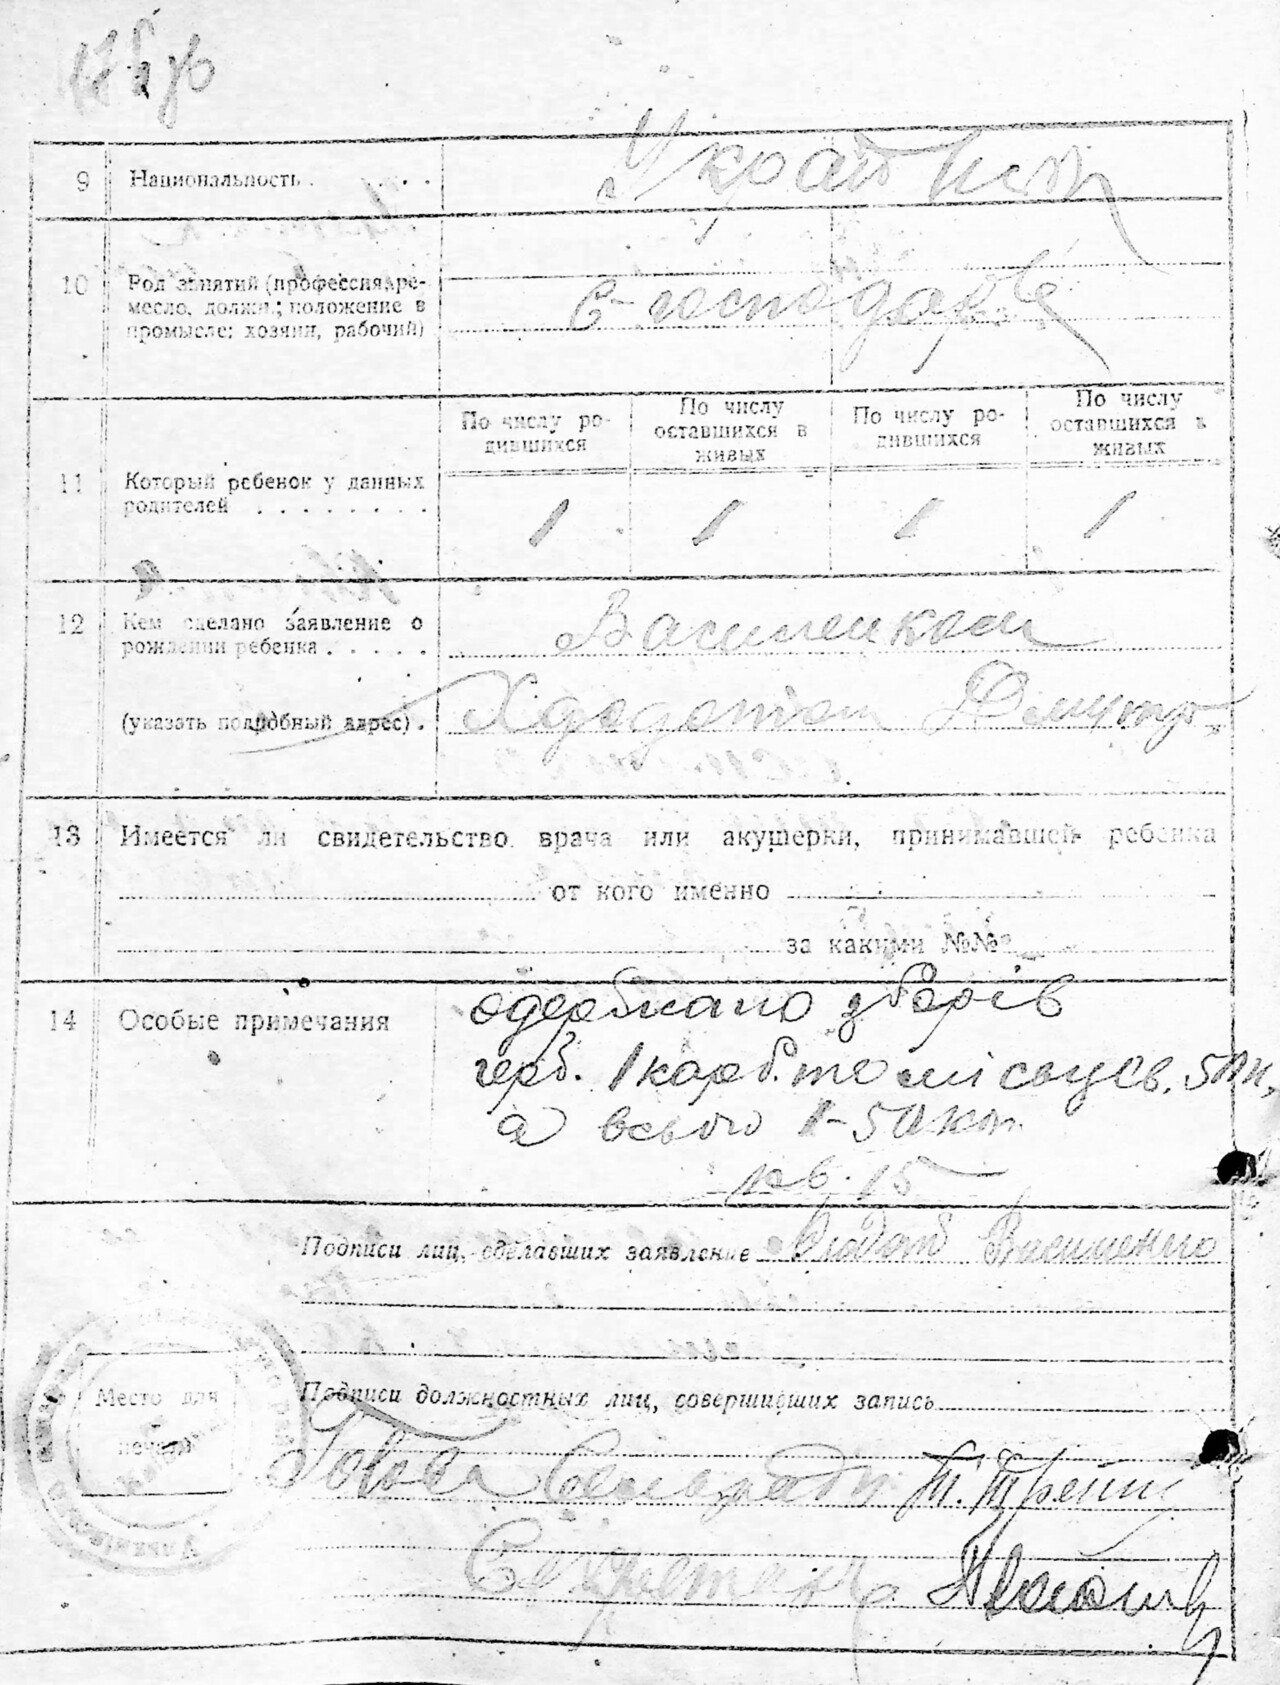 9 Национальность . . . . .
Українці
10 Род занятий (профессия, ре-
месло, должн.; положение в
промысле: хозяин, рабочий)
с-господарс
По числу ро-
дившихся
По числу
оставшихся в
живых
По числу ро-
дившихся
По числу
оставшихся в
живых
11 Который ребенок у данных
родителей . . . . . . . .
1 1 1 1
12 Кем сделано заявление о
рождении ребенка . . . . .
Василенком
(указать подробный адрес) .
13 Имеется ли свидетельство врача или акушерки, принимавшей ребенка
от кого именно
за какими №№
14 Особые примечания
одержано зборів
герб. 1 карб. та місцев. 50 к.,
а всього 1-50 коп.
кв. 15
Подписи лиц, сделавших заявление Василенко
Место для
печати
Подписи должностных лиц, совершивших запись
Голова Сільради
Секретарь